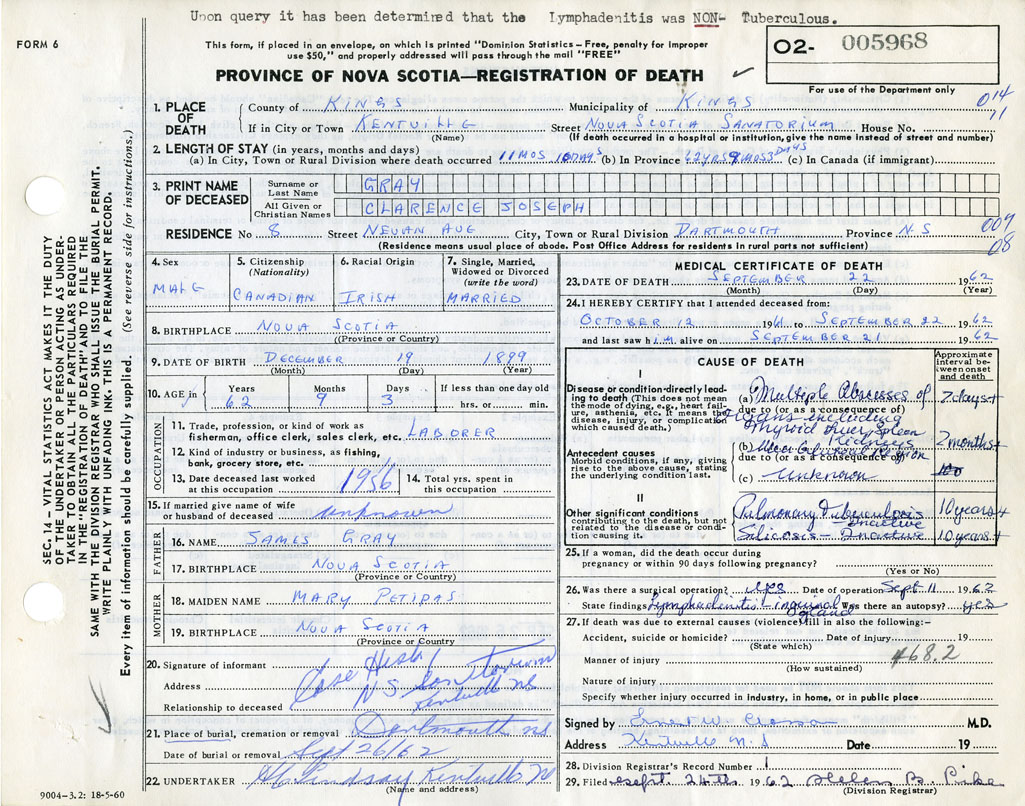 Upon query it has been determined that the Lymphadenitis was NON- Tuberculous.
FORM 6
This form, if placed in an envelope, on which is printed "Dominion Statistics – Free, penalty for improper
use $50," and properly addressed will pass through the mail "FREE"
PROVINCE OF NOVA SCOTIA—REGISTRATION OF DEATH
02- 005968
For use of the Department only
014
11
1. PLACE OF DEATH
County of KINGS Municipality of KINGS
If in City or Town KENTVILLE Street NOVA SCOTIA SANATORIUM House No.
(Name) (If death occurred in a hospital or institution, give the name instead of street and number)
2. LENGTH OF STAY (in years, months and days)
(a) In City, Town or Rural Division where death occurred 11 MOS 10 DAYS (b) In Province 62 YRS 9 MOS 3 DAYS (c) In Canada (if immigrant)
3. PRINT NAME OF DECEASED
Surname or Last Name GRAY
All Given or Christian Names CLARENCE JOSEPH
RESIDENCE No 8 Street NEVAN AVE City, Town or Rural Division DARTMOUTH Province N.S
(Residence means usual place of abode. Post Office Address for residents in rural parts not sufficient)
009
08
4. Sex MALE
5. Citizenship (Nationality) CANADIAN
6. Racial Origin IRISH
7. Single, Married, Widowed or Divorced (write the word) MARRIED
8. BIRTHPLACE NOVA SCOTIA
(Province or Country)
9. DATE OF BIRTH DECEMBER 19 1899
(Month) (Day) (Year)
10. AGE in Years 62 Months 9 Days 3 If less than one day old
hrs. or min.
OCCUPATION
11. Trade, profession, or kind of work as
fisherman, office clerk, sales clerk, etc. LABORER
12. Kind of industry or business, as fishing,
bank, grocery store, etc.
13. Date deceased last worked at this occupation 1956
14. Total yrs. spent in this occupation
15. If married give name of wife
or husband of deceased unknown
FATHER
16. NAME JAMES GRAY
17. BIRTHPLACE NOVA SCOTIA
(Province or Country)
MOTHER
18. MAIDEN NAME MARY PETIPAS
19. BIRTHPLACE NOVA SCOTIA
(Province or Country)
20. Signature of informant Case History
Address N.S. Sanitorium
Relationship to deceased Kentville NS
21. Place of burial, cremation or removal Dartmouth NS
Date of burial or removal Sept 26/62
22. UNDERTAKER Lindsay Kentville NS
(Name and address)
9004-3.2: 18-5-60
MEDICAL CERTIFICATE OF DEATH
23. DATE OF DEATH SEPTEMBER 22 1962
(Month) (Day) (Year)
24. I HEREBY CERTIFY that I attended deceased from:
OCTOBER 12 1961 to SEPTEMBER 22 1962
and last saw him alive on SEPTEMBER 21 1962
CAUSE OF DEATH
Approximate interval between onset and death
I
Disease or condition directly leading to death (This does not mean
the mode of dying, e.g., heart failure, asthenia, etc. It means the
disease, injury, or complication which caused death.)
(a) Multiple Abscesses of 7 days+
due to (or as a consequence of)
organs including
thyroid liver spleen
Kidneys
Antecedent causes
Morbid conditions, if any, giving
rise to the above cause, stating
the underlying condition last.
(b) 2 months+
due to (or as a consequence of)
(c) unknown
II
Other significant conditions
contributing to the death, but not
related to the disease or condition causing it.
Pulmonary Tuberculosis 10 years+
– Inactive
Silicosis – Inactive 10 years+
25. If a woman, did the death occur during
pregnancy or within 90 days following pregnancy?
(Yes or No)
26. Was there a surgical operation? yes Date of operation Sept 11 1962
State findings Lymphadenitis Inguinal gland Was there an autopsy? yes
27. If death was due to external causes (violence) fill in also the following:–
Accident, suicide or homicide? Date of injury 19
(State which)
Manner of injury 468.2
(How sustained)
Nature of injury
Specify whether injury occurred in industry, in home, or in public place
Signed by M.D.
Address Kentville N.S Date 19
28. Division Registrar's Record Number 1
29. Filed Sept. 24th 1962 Helen B. Pike
(Division Registrar)
SEC. 14 – VITAL STATISTICS ACT MAKES IT THE DUTY
OF THE UNDERTAKER OR PERSON ACTING AS UNDER-
TAKER TO OBTAIN ALL THE PARTICULARS REQUIRED
IN THE "REGISTRATION OF DEATH" AND TO FILE THE
SAME WITH THE DIVISION REGISTRAR WHO SHALL ISSUE THE BURIAL PERMIT.
WRITE PLAINLY WITH UNFADING INK. THIS IS A PERMANENT RECORD.
Every item of information should be carefully supplied. (See reverse side for instructions.)